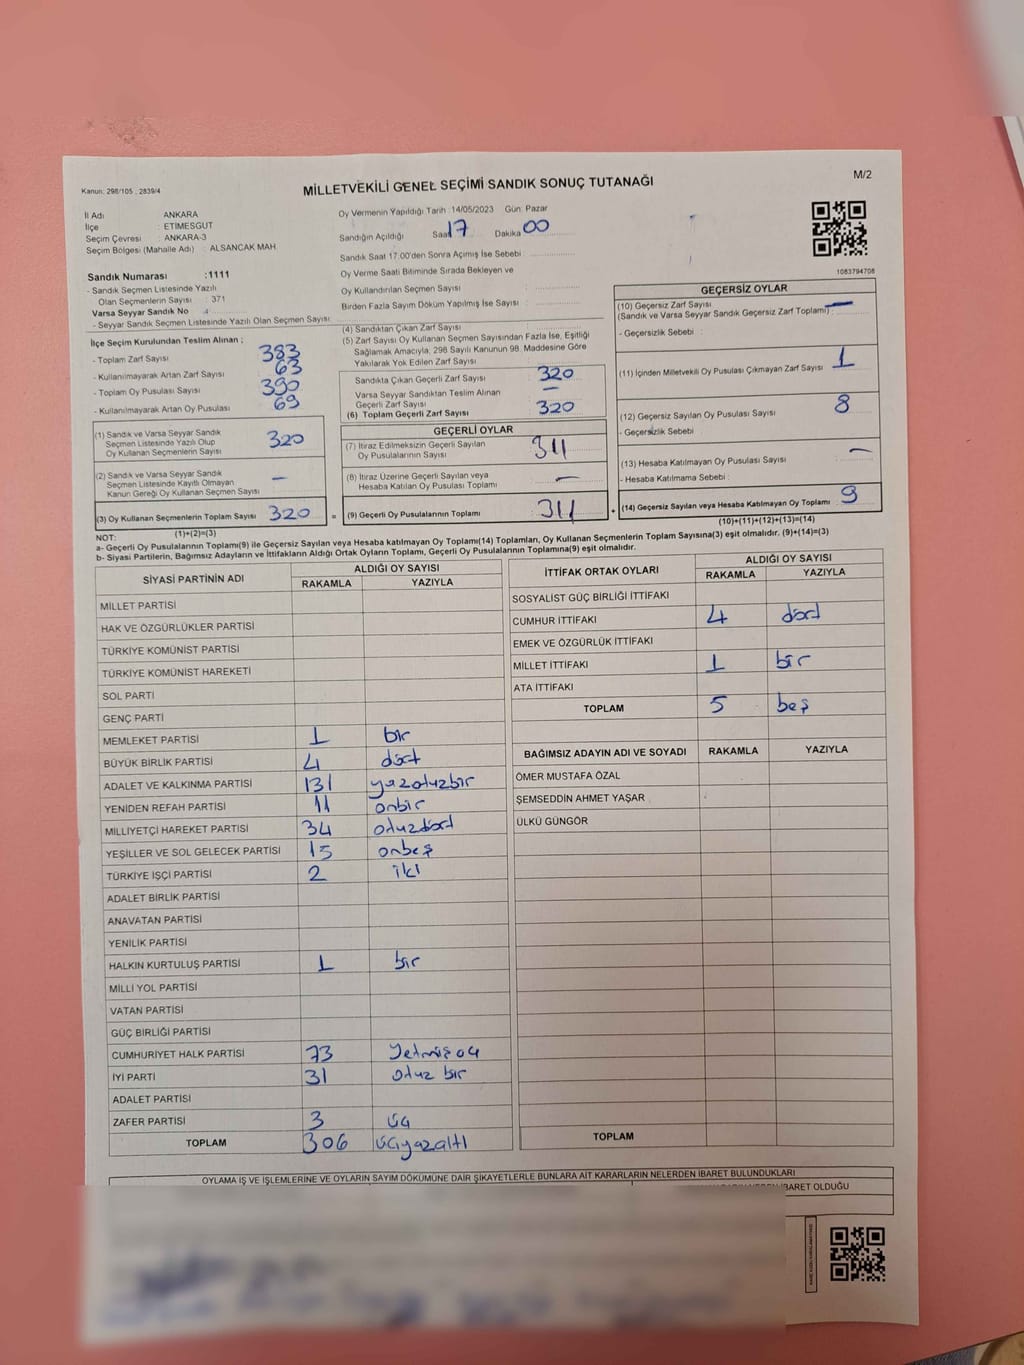 Kanun: 298/105 , 2839/4
MİLLETVEKİLİ GENEL SEÇİMİ SANDIK SONUÇ TUTANAĞI
M/2
İl Adı ANKARA
İlçe : ETİMESGUT
Seçim Çevresi : ANKARA-3
Seçim Bölgesi (Mahalle Adı) : ALSANCAK MAH.
Sandık Numarası :1111
- Sandık Seçmen Listesinde Yazılı
Olan Seçmenlerin Sayısı : 371
Varsa Seyyar Sandık No
- Seyyar Sandık Seçmen Listesinde Yazılı Olan Seçmen Sayısı:
Oy Vermenin Yapıldığı Tarih :14/05/2023 Gün: Pazar
Sandığın Açıldığı Saat 17 Dakika 00
Sandık Saat 17.00'den Sonra Açımış İse Sebebi :
Oy Verme Saati Bitiminde Sırada Bekleyen ve
Oy Kullandırılan Seçmen Sayısı :
Birden Fazla Sayım Döküm Yapılmış İse Sayısı :
1083794708
İlçe Seçim Kurulundan Teslim Alınan ;
- Toplam Zarf Sayısı 383
- Kullanılmayarak Artan Zarf Sayısı 63
- Toplam Oy Pusulası Sayısı 390
- Kullanılmayarak Artan Oy Pusulası 69
(1) Sandık ve Varsa Seyyar Sandık
Seçmen Listesinde Yazılı Olup
Oy Kullanan Seçmenlerin Sayısı 320
(2) Sandık ve Varsa Seyyar Sandık
Seçmen Listesinde Kayıtlı Olmayan
Kanun Gereği Oy Kullanan Seçmen Sayısı —
(3) Oy Kullanan Seçmenlerin Toplam Sayısı 320 =
(1)+(2)=(3)
(4) Sandıktan Çıkan Zarf Sayısı
(5) Zarf Sayısı Oy Kullanan Seçmen Sayısından Fazla İse, Eşitliği
Sağlamak Amacıyla, 298 Sayılı Kanunun 98. Maddesine Göre
Yakılarak Yok Edilen Zarf Sayısı
Sandıkta Çıkan Geçerli Zarf Sayısı 320
Varsa Seyyar Sandıktan Teslim Alınan
Geçerli Zarf Sayısı —
(6) Toplam Geçerli Zarf Sayısı 320
GEÇERLİ OYLAR
(7) İtiraz Edilmeksizin Geçerli Sayılan
Oy Pusulalarının Sayısı 311
(8) İtiraz Üzerine Geçerli Sayılan veya
Hesaba Katılan Oy Pusulası Toplamı —
(9) Geçerli Oy Pusulalarının Toplamı 311 +
GEÇERSİZ OYLAR
(10) Geçersiz Zarf Sayısı —
(Sandık ve Varsa Seyyar Sandık Geçersiz Zarf Toplamı)
- Geçersizlik Sebebi :
(11) İçinden Milletvekili Oy Pusulası Çıkmayan Zarf Sayısı 1
(12) Geçersiz Sayılan Oy Pusulası Sayısı 8
- Geçersizlik Sebebi
(13) Hesaba Katılmayan Oy Pusulası Sayısı —
- Hesaba Katılmama Sebebi :
(14) Geçersiz Sayılan veya Hesaba Katılmayan Oy Toplamı 9
(10)+(11)+(12)+(13)=(14)
NOT:
a- Geçerli Oy Pusulalarının Toplamı(9) ile Geçersiz Sayılan veya Hesaba katılmayan Oy Toplamı(14) Toplamları, Oy Kullanan Seçmenlerin Toplam Sayısına(3) eşit olmalıdır. (9)+(14)=(3)
b- Siyasi Partilerin, Bağımsız Adayların ve İttifakların Aldığı Ortak Oyların Toplamı, Geçerli Oy Pusulalarının Toplamına(9) eşit olmalıdır.
SİYASİ PARTİNİN ADI ALDIĞI OY SAYISI
RAKAMLA YAZIYLA
MİLLET PARTİSİ
HAK VE ÖZGÜRLÜKLER PARTİSİ
TÜRKİYE KOMÜNİST PARTİSİ
TÜRKİYE KOMÜNİST HAREKETİ
SOL PARTİ
GENÇ PARTİ
MEMLEKET PARTİSİ 1 bir
BÜYÜK BİRLİK PARTİSİ 4 dört
ADALET VE KALKINMA PARTİSİ 131 yazotuzbir
YENİDEN REFAH PARTİSİ 11 onbir
MİLLİYETÇİ HAREKET PARTİSİ 34 otuzdört
YEŞİLLER VE SOL GELECEK PARTİSİ 15 onbeş
TÜRKİYE İŞÇİ PARTİSİ 2 iki
ADALET BİRLİK PARTİSİ
ANAVATAN PARTİSİ
YENİLİK PARTİSİ
HALKIN KURTULUŞ PARTİSİ 1 bir
MİLLİ YOL PARTİSİ
VATAN PARTİSİ
GÜÇ BİRLİĞİ PARTİSİ
CUMHURİYET HALK PARTİSİ 73 Yetmişüç
İYİ PARTİ 31 otuz bir
ADALET PARTİSİ
ZAFER PARTİSİ 3 üç
TOPLAM 306 üçyazaltı
İTTİFAK ORTAK OYLARI ALDIĞI OY SAYISI
RAKAMLA YAZIYLA
SOSYALİST GÜÇ BİRLİĞİ İTTİFAKI
CUMHUR İTTİFAKI 4 dört
EMEK VE ÖZGÜRLÜK İTTİFAKI
MİLLET İTTİFAKI 1 bir
ATA İTTİFAKI
TOPLAM 5 beş
BAĞIMSIZ ADAYIN ADI VE SOYADI RAKAMLA YAZIYLA
ÖMER MUSTAFA ÖZAL
ŞEMSEDDİN AHMET YAŞAR
ÜLKÜ GÜNGÖR
TOPLAM
OYLAMA İŞ VE İŞLEMLERİNE VE OYLARIN SAYIM DÖKÜMÜNE DAİR ŞİKAYETLERLE BUNLARA AİT KARARLARIN NELERDEN İBARET BULUNDUKLARI
İBARET OLDUĞU